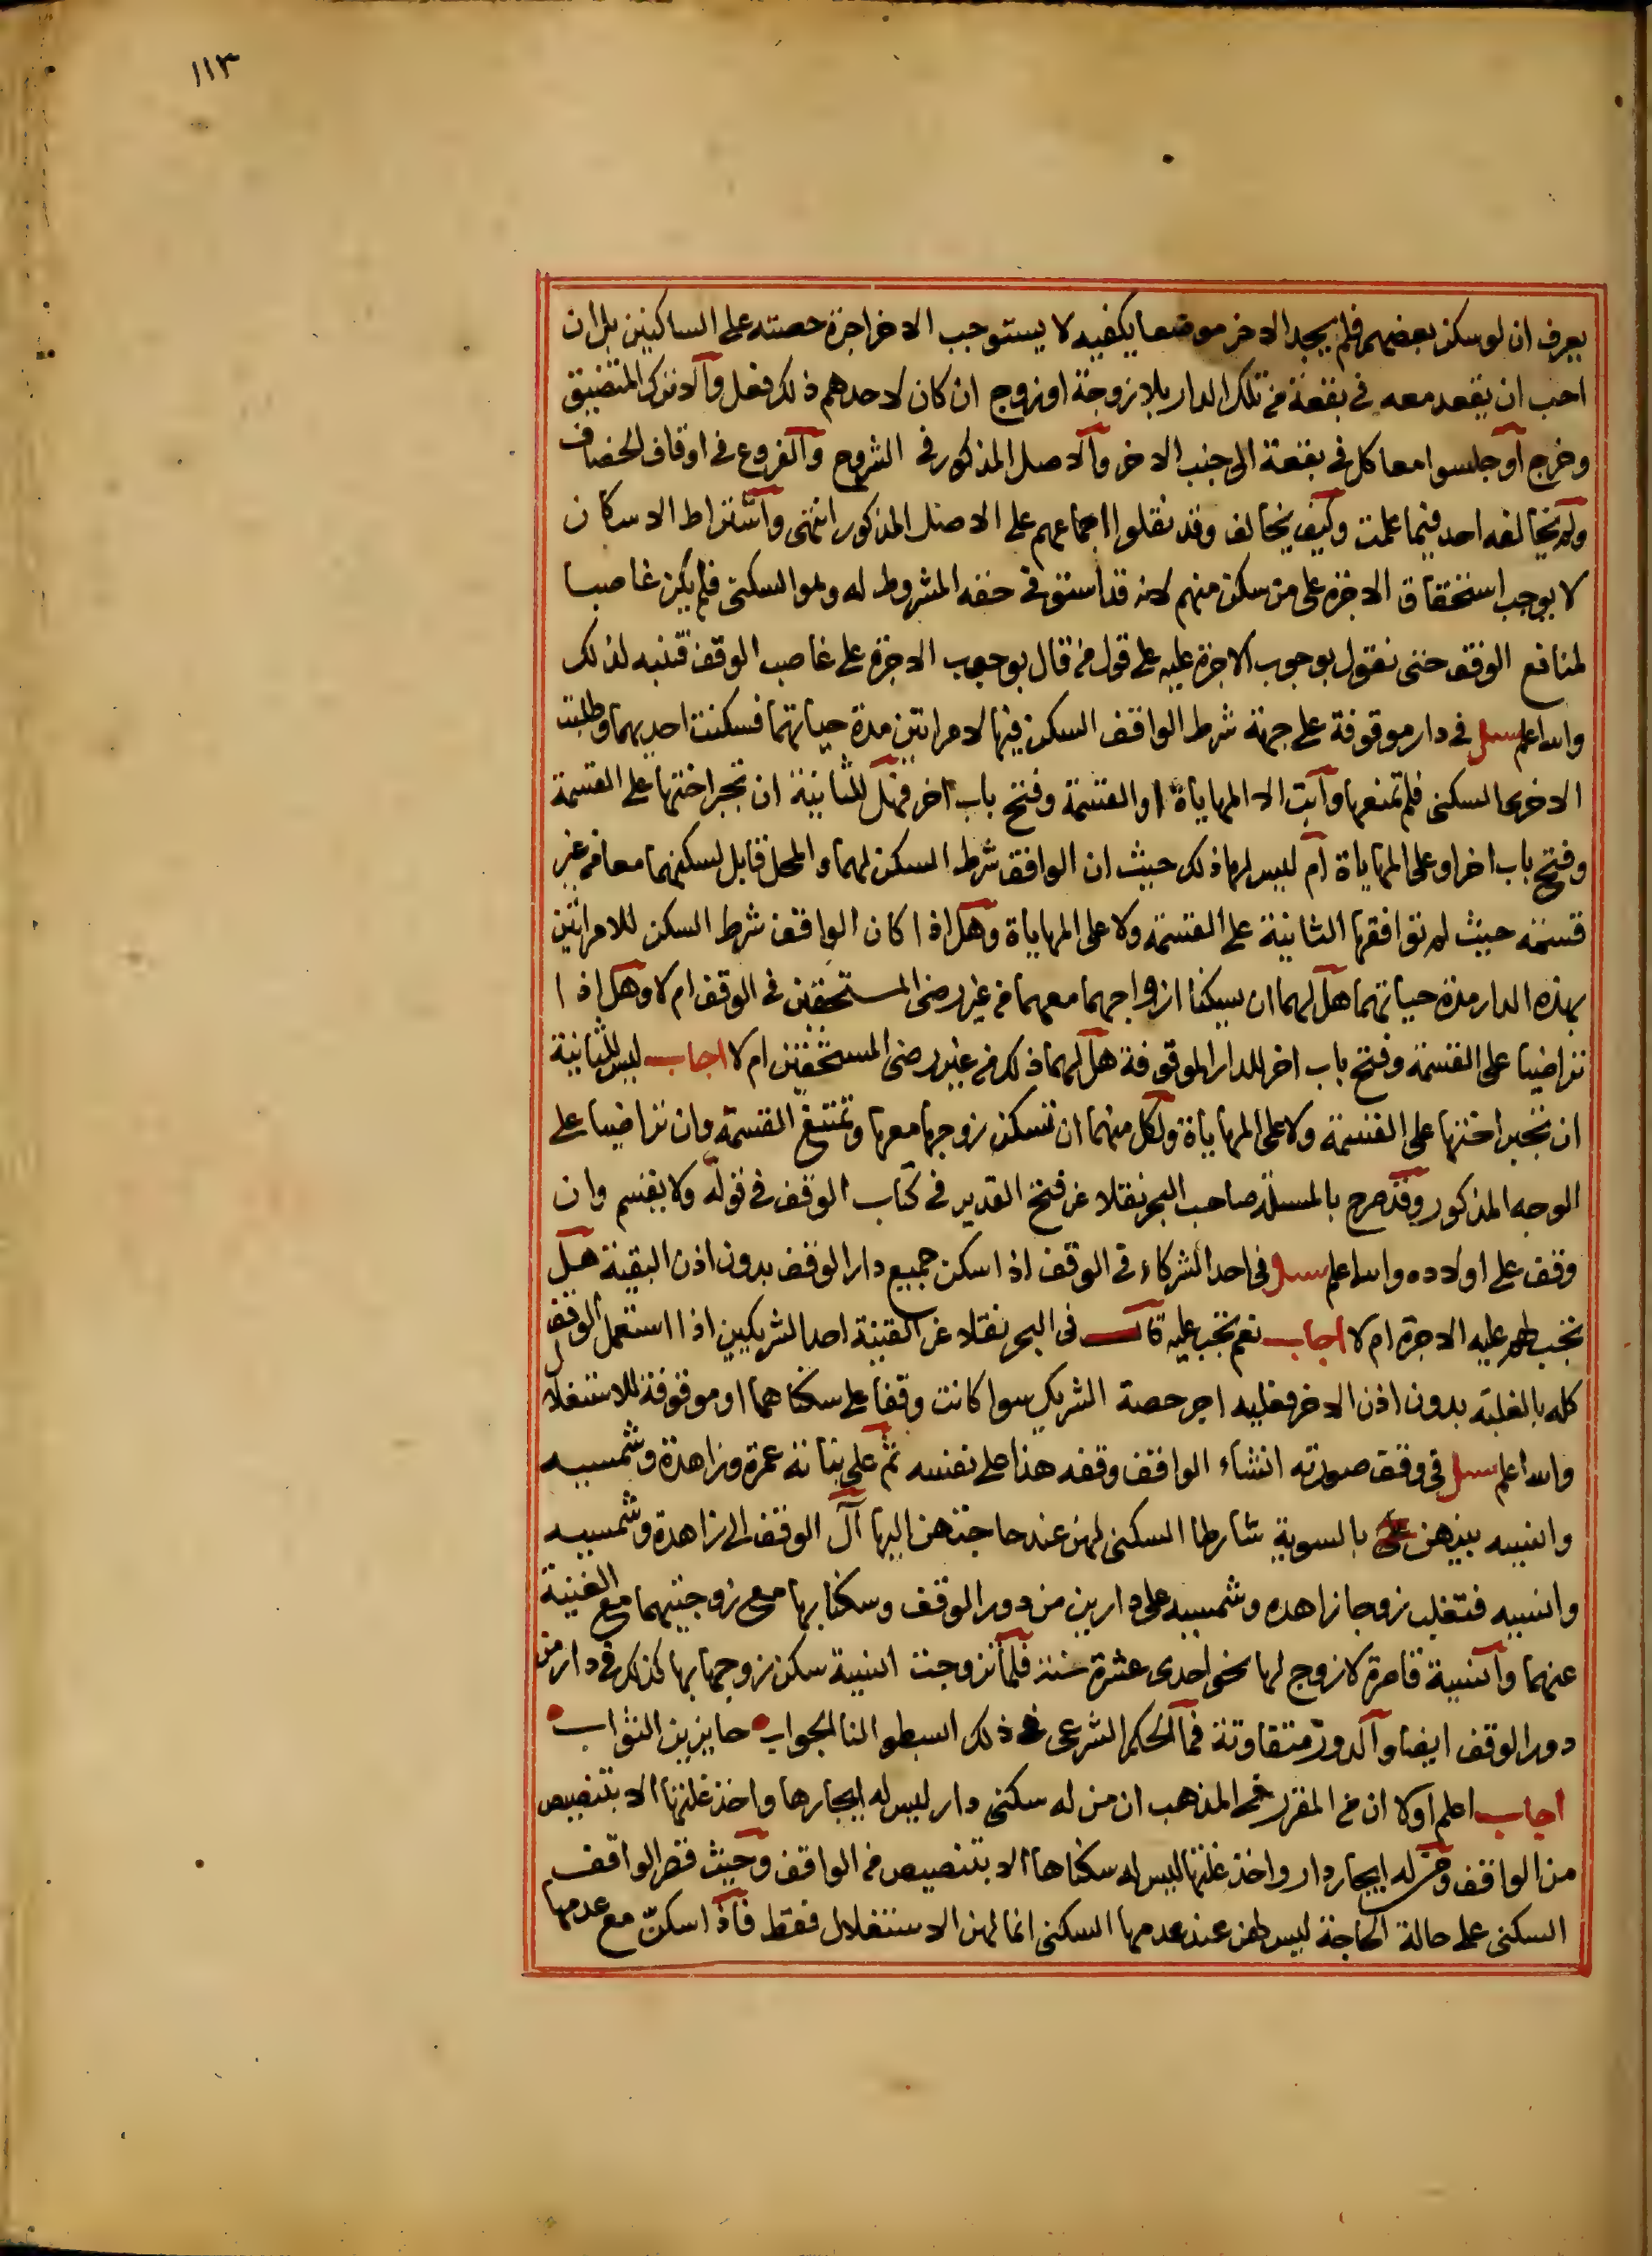 ١١٣
يعرف ان لو سكن بعضهم فلم يجد الاخر موضعا يكفيه لا يستوجب الاخر اجرة حصته على الساكنين بل ان
احب ان يقعد معه في بقعة من تلك الدار بلا زوجة او زوج ان كان لاحدهم ذلك فعل والا ترك المتضيق
وخرج او جلسوا معا كل في بقعة الى جنب الاخر والاصل المذكور في الشروح والفروع في اوقاف الخصاف
ولم يخالفه احد فيما علمت وكيف يخالف وقد نقلوا اجماعهم على الاصل المذكور انتهى واشتراط الاسكان
لا يوجب استحقاق الاجرة على من سكن منهم لانه قد استوفى حقه المشروط له وهو السكنى فلم يكن غاصبا
لمنافع الوقف حتى نقول بوجوب الاجرة عليه على قول من قال بوجوب الاجرة على غاصب الوقف فتنبه لذلك
والله اعلم سئل في دار موقوفة على جهة شرط الواقف السكن فيها لامراتين مدة حياتهما فسكنت احديهما وطلبت
الاخرى السكنى فلم تمنعها وابت الا المهاياة او القسمة وفتح باب اخر فهل للثانية ان تجبر اختها على القسمة
وفتح باب اخر او على المهاياة ام ليس لها ذلك حيث ان الواقف شرط السكن لهما والمحل قابل لسكنهما معا من غير
قسمة حيث لم توافقها الثانية على القسمة ولا على المهاياة وهل اذا كان الواقف شرط السكن للامراتين
بهذه الدار مدة حياتهما هل لهما ان يسكنا ازواجهما معهما من غير رضى المستحقين في الوقف ام لا وهل اذا
تراضيا على القسمة وفتح باب اخر للدار الموقوفة هل لهما ذلك من غير رضى المستحقين ام لا اجاب ليس للثانية
ان تجبر اختها على القسمة ولا على المهاياة ولكل منهما ان تسكن زوجها معها وتمتنع القسمة وان تراضيا على
الوجه المذكور وقد صرح بالمسئلة صاحب البحر نقلا عن فتح القدير في كتاب الوقف في قوله ولا يقسم وان
وقف على اولاده والله اعلم سئل في احد الشركاء في الوقف اذا سكن جميع دار الوقف بدون اذن البقية هل
تجب لهم عليه الاجرة ام لا اجاب نعم تجب عليه قال في البحر نقلا عن القنية احد الشريكين اذا استعمل الوقف
كله بالغلبة بدون اذن الاخر فعليه اجر حصة الشريك سوا كانت وقفا على سكناهما او موقوفة للاستغلال
والله اعلم سئل في وقف صورته انشاء الواقف وقفه هذا على نفسه ثم على بناته عمرة وزاهدة وشمسيه
وانسيه بينهن بالسوية شارطا السكنى لهن عند حاجتهن اليها آل الوقف الى زاهدة وشمسيه
وانسيه فتغلب زوجا زاهده وشمسيه على دارين من دور الوقف وسكنا بها مع زوجتيهما مع الغنية
عنهما وانسية قاصرة لا زوج لها نحو احدى عشرة سنة فلما تزوجت انسية سكن زوجها بها كذلك في دار من
دور الوقف ايضا والدور متفاوتة فما الحكم الشرعي في ذلك ابسطوا لنا الجواب حايزين الثواب
اجاب اعلم اولا ان من المقرر في المذهب ان من له سكنى دار ليس له ايجارها واخذ غلتها الا بتنصيص
من الواقف ومن له ايجار دار واخذ غلتها ليس له سكناها الا بتنصيص من الواقف وحيث قصر الواقف
السكنى على حالة الحاجة ليس لهن عند عدمها السكنى انما لهن الاستغلال فقط فاذا سكنّ مع عدمها